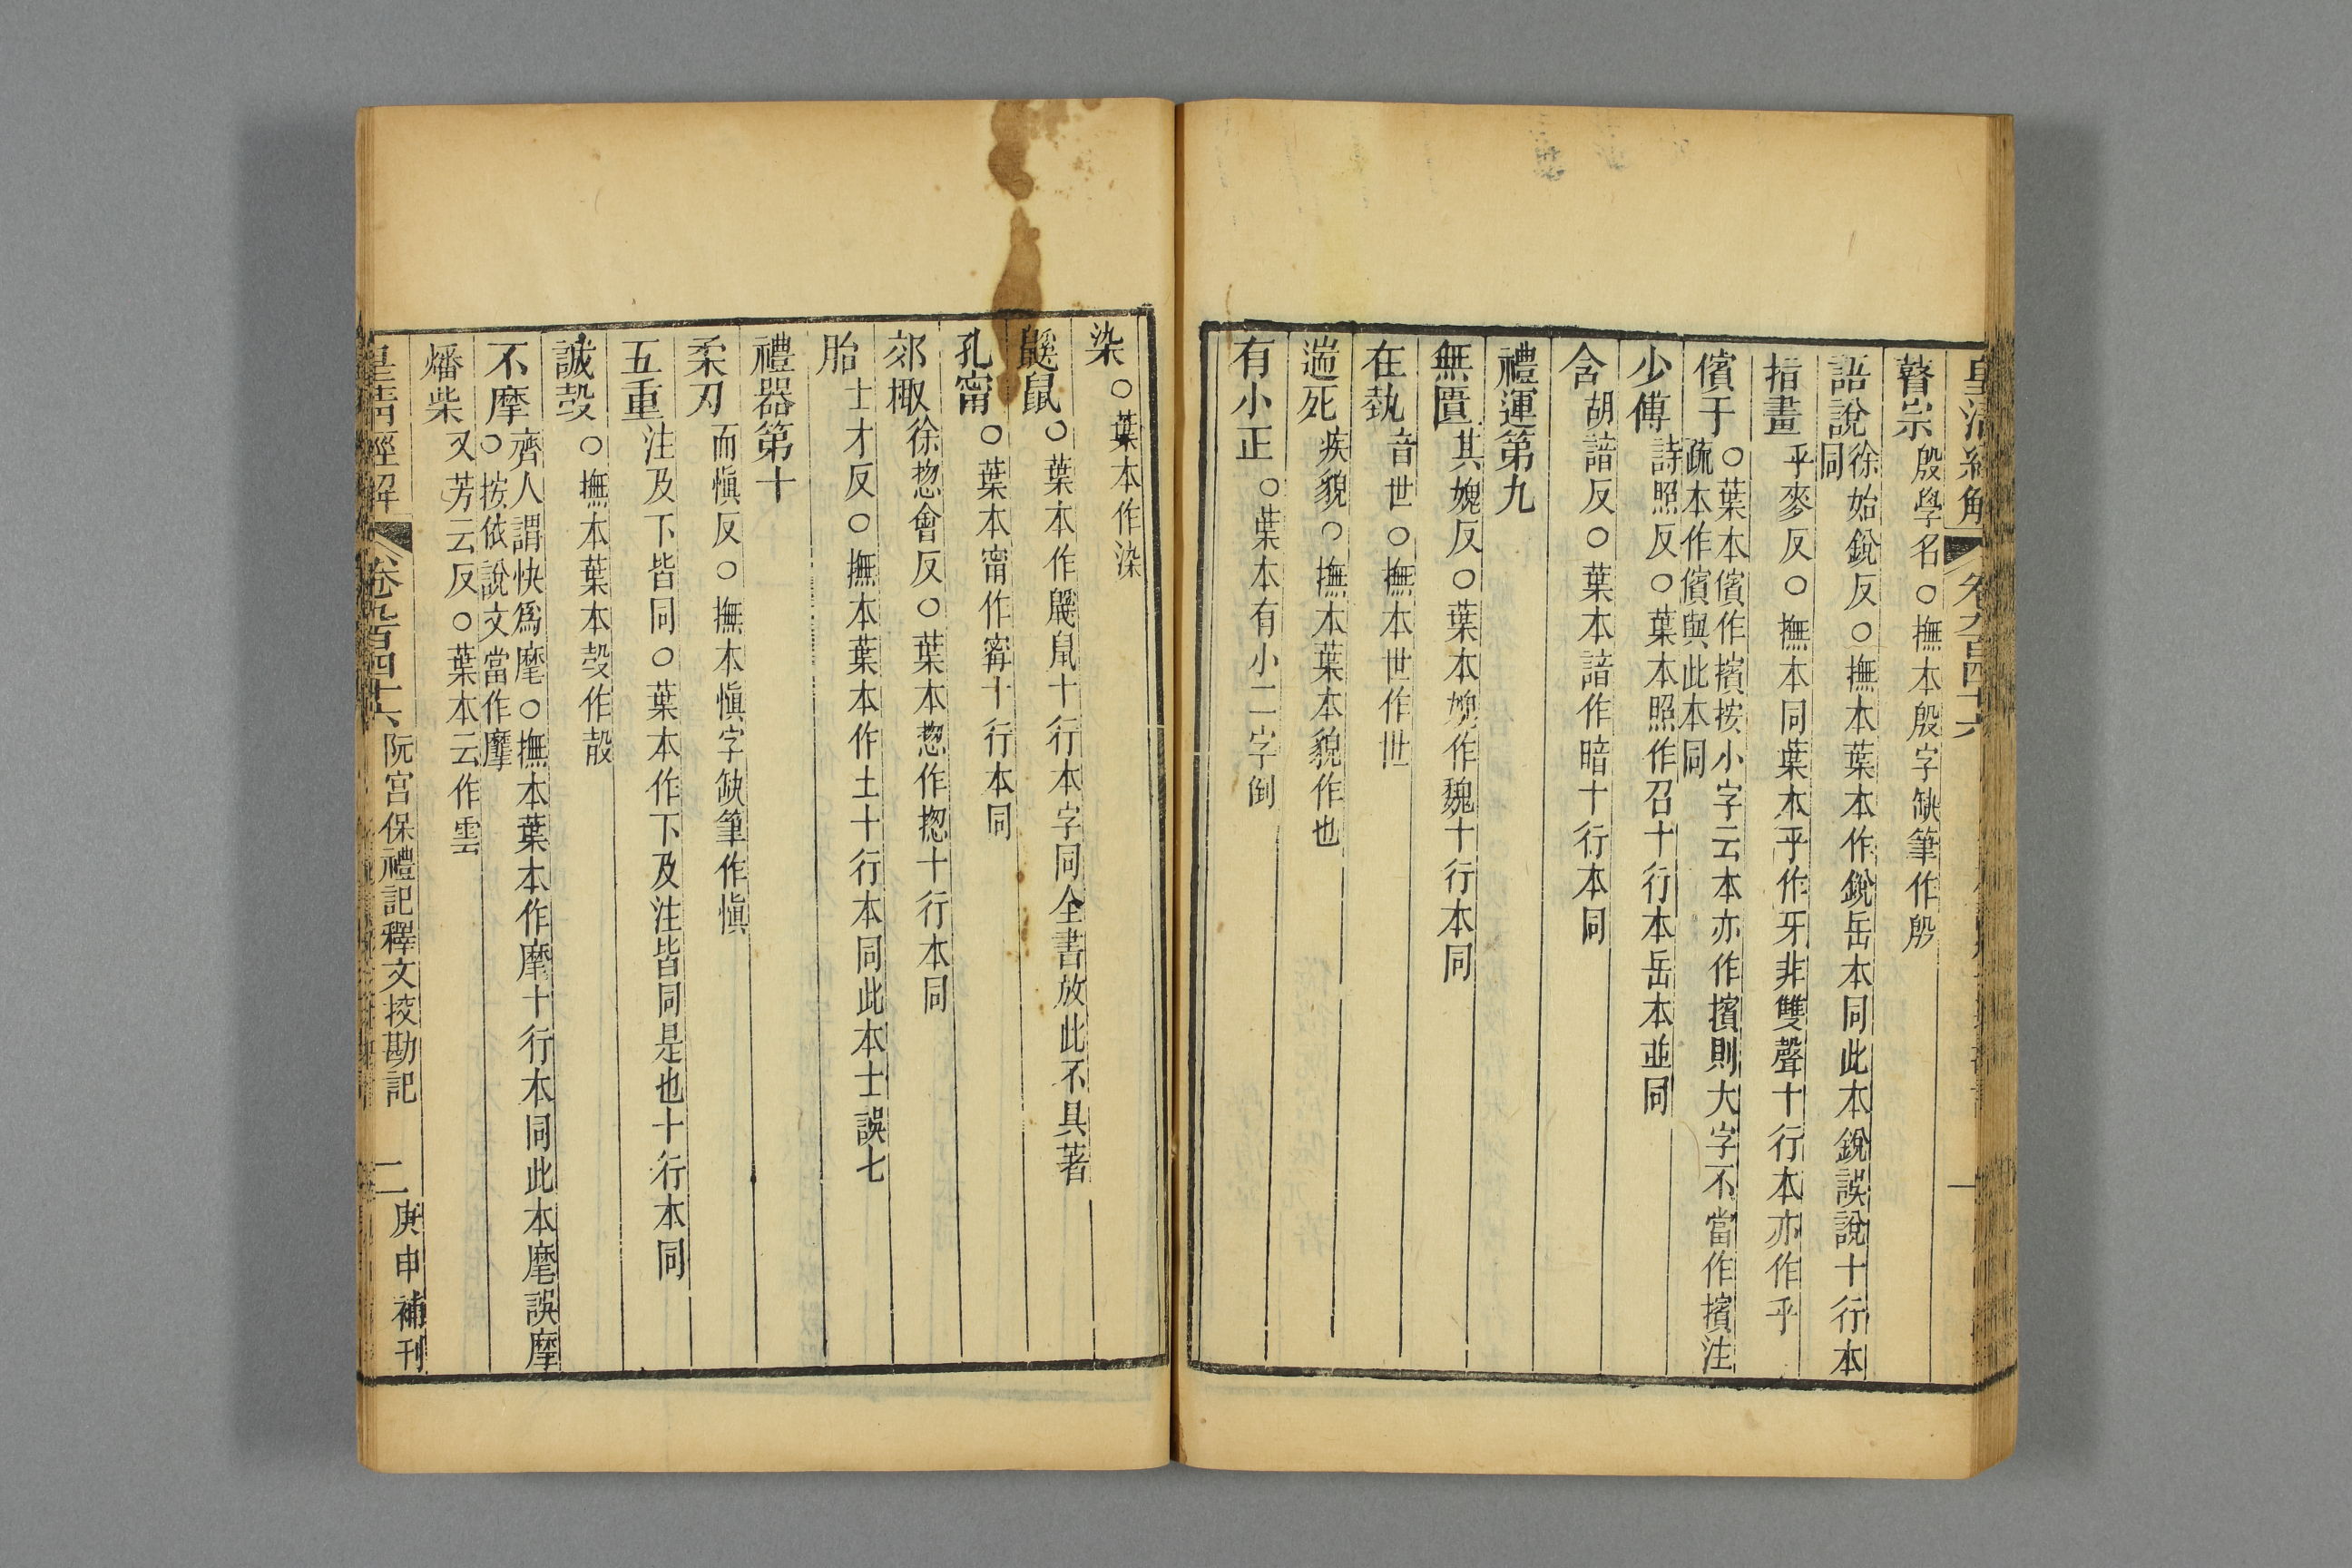 皇清經解 卷九百四十六
瞽宗殷學名○撫本殷字缺筆作殷
語說徐始銳反○撫本葉本作銳岳本同此本銳誤說十行本
同
指畫乎麥反○撫本同葉本乎作牙非雙聲十行本亦作乎
儐于○葉本儐作擯按小字云本亦作擯則大字不當作擯注
疏本作儐與此本同
少傅詩照反○葉本照作召十行本岳本並同
含胡諳反○葉本諳作暗十行本同
禮運第九
無匱其媿反○葉本媿作魏十行本同
在埶音世○撫本世作世
遄死疾貌○撫本葉本貌作也
有小正○葉本有小二字倒
染○葉本作染
鼷鼠○葉本作鼷鼠十行本字同全書放此不具著
孔甯○葉本甯作寗十行本同
郊棷徐揔會反○葉本揔作揔十行本同
胎士才反○撫本葉本作土十行本同此本士誤七
禮器第十
柔刃而愼反○撫本愼字缺筆作愼
五重注及下皆同○葉本作下及注皆同是也十行本同
誠㱿○撫本葉本㱿作㱿
不摩齊人謂快爲麾○撫本葉本作麾十行本同此本麾誤摩
○按依說文當作摩
燔柴又芳云反○葉本云作雲
皇清經解 卷九百四十六 阮宮保禮記釋文挍勘記 二 庚申補刊